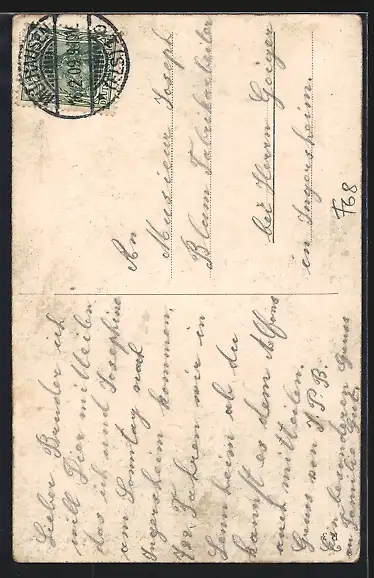 MÜLHAUSEN
(ELS.)
2.09.
An
Musieur Joseph
Blum Fabrikarbeiter
bei Herrn Geiger
in Ingersheim.
768
Lieber Bruder ich
will Dier mitteilen
das ich und Josephine
am Sonntag nach
Ingersheim kommen.
Fahren wir in
Sennheim ab du
kannst es dem Alfons
auch mitteilen.
Gruss von J. P. B.
Ein besonderen Gruss
an Familie Gut.